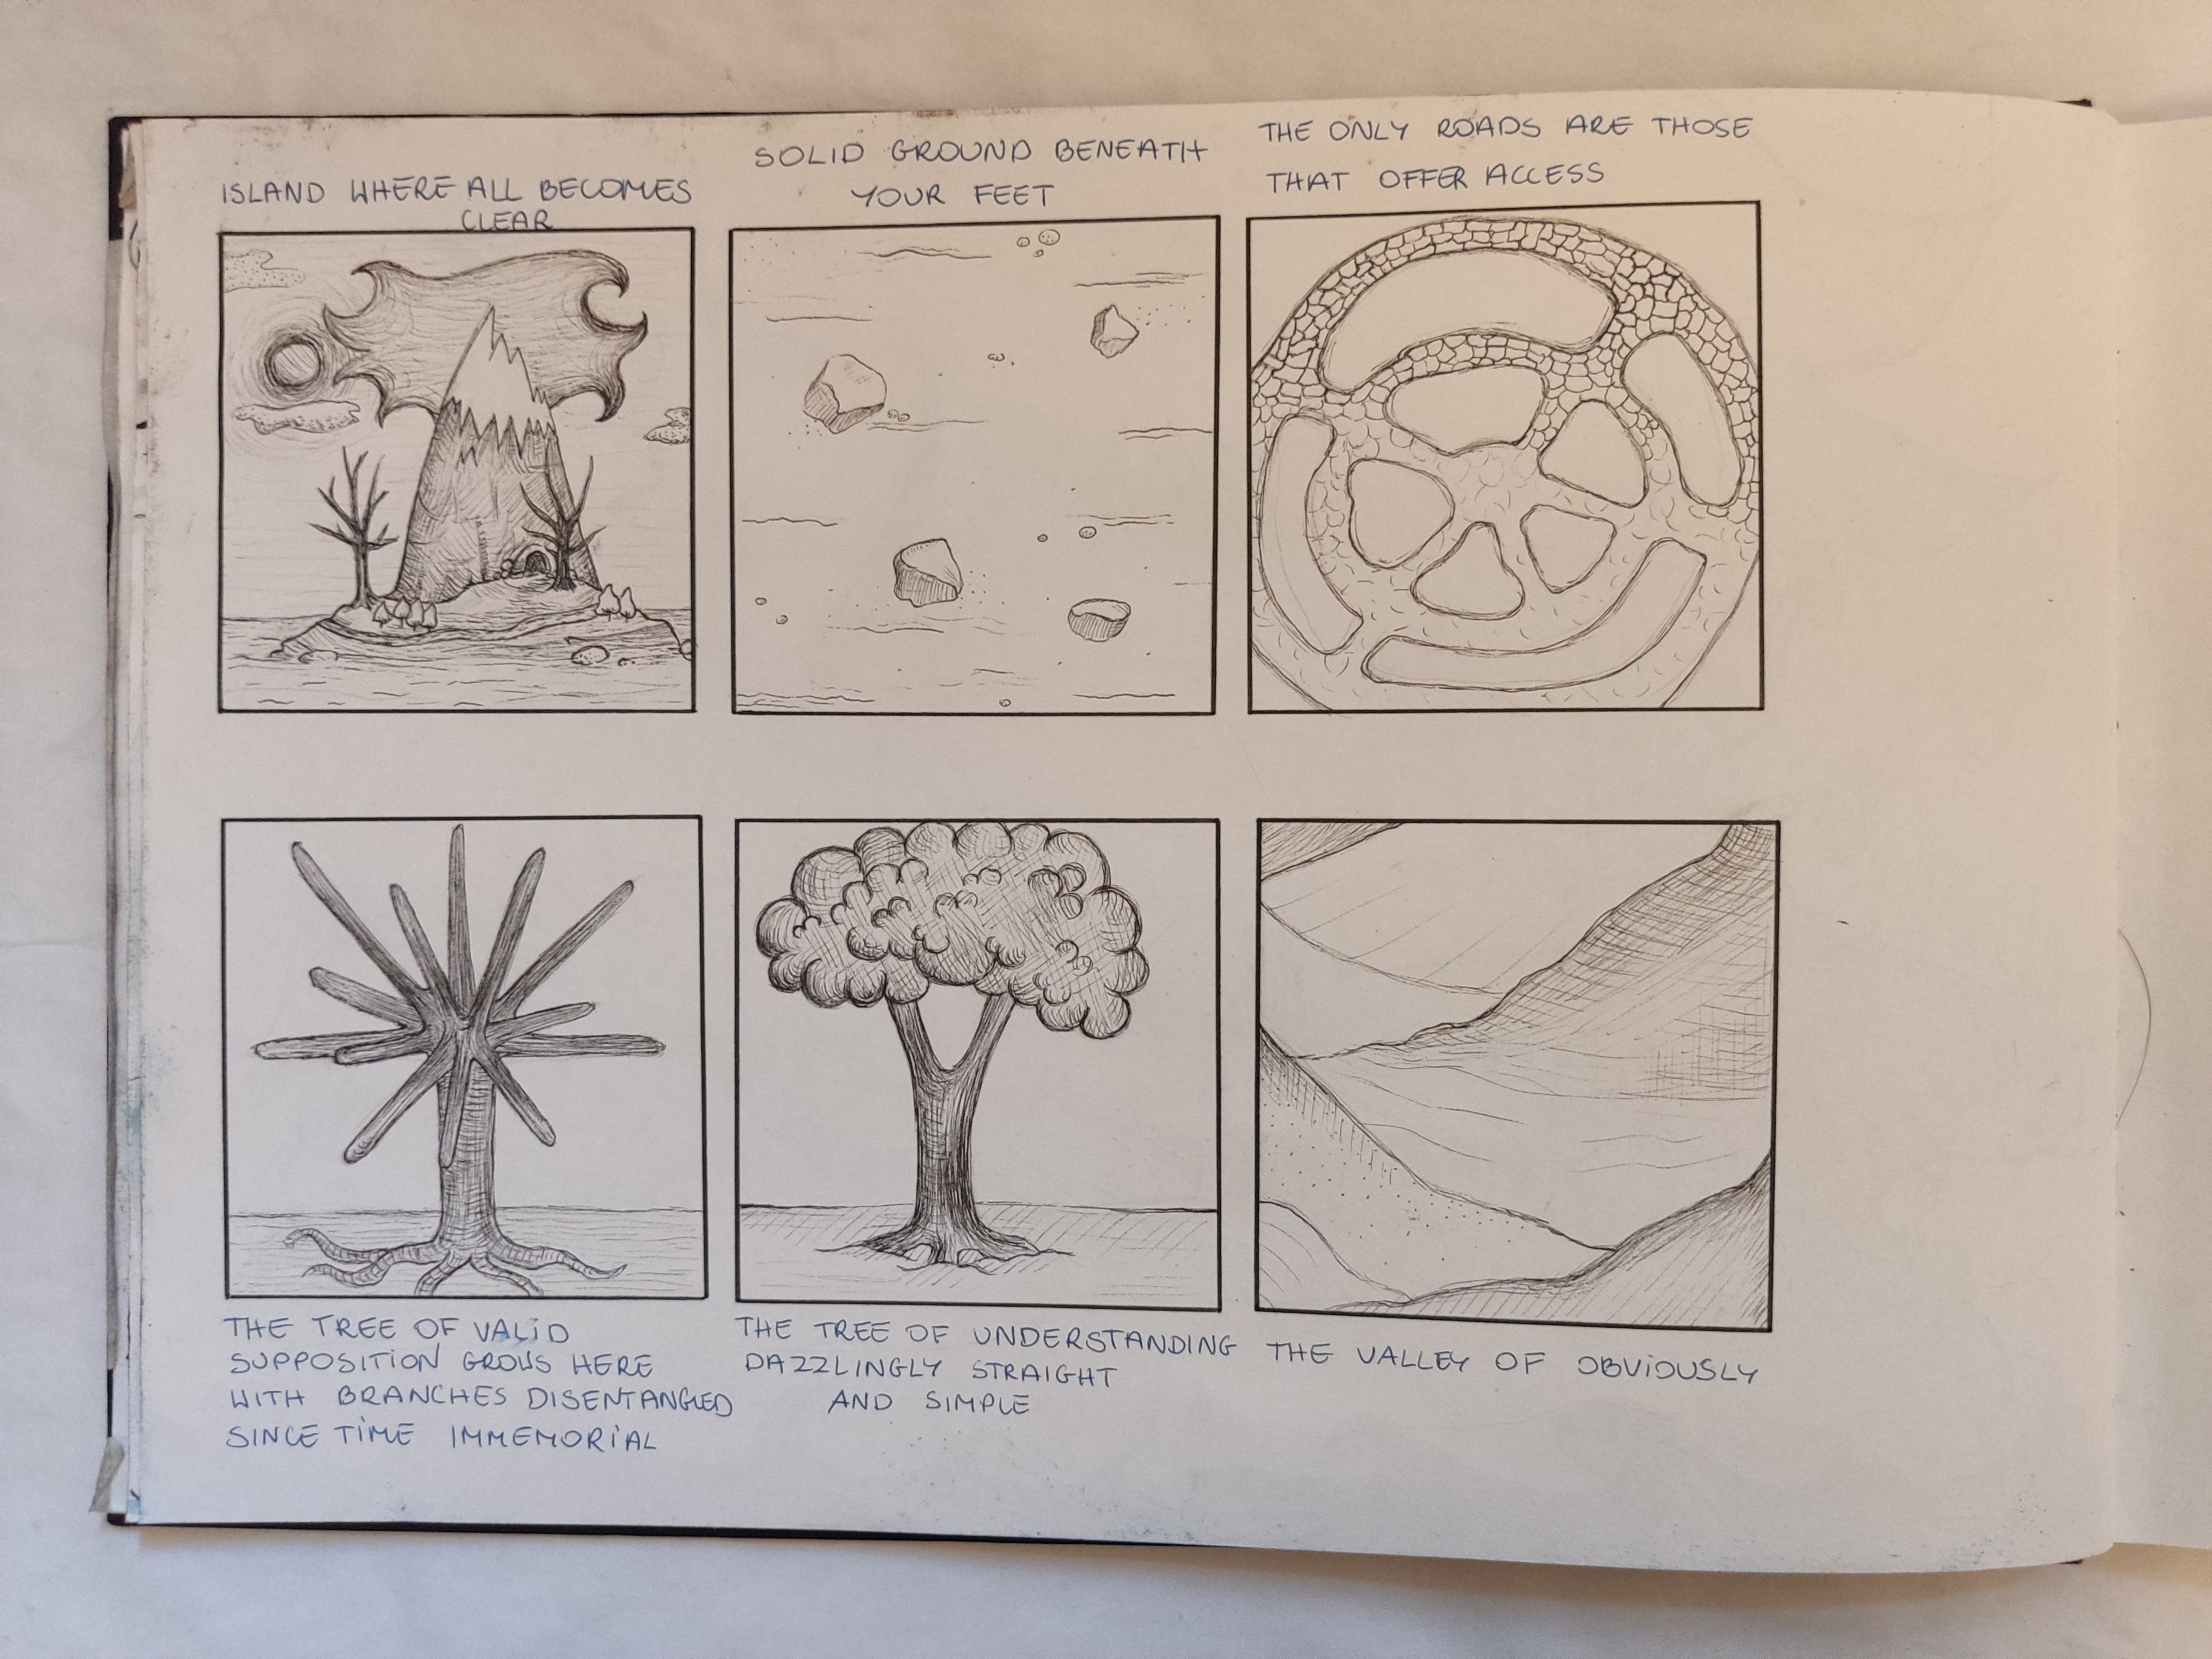 ISLAND WHERE ALL BECOMES
CLEAR
SOLID GROUND BENEATH
YOUR FEET
THE ONLY ROADS ARE THOSE
THAT OFFER ACCESS
THE TREE OF VALID
SUPPOSITION GROWS HERE
WITH BRANCHES DISENTANGLED
SINCE TIME IMMEMORIAL
THE TREE OF UNDERSTANDING
DAZZLINGLY STRAIGHT
AND SIMPLE
THE VALLEY OF OBVIOUSLY